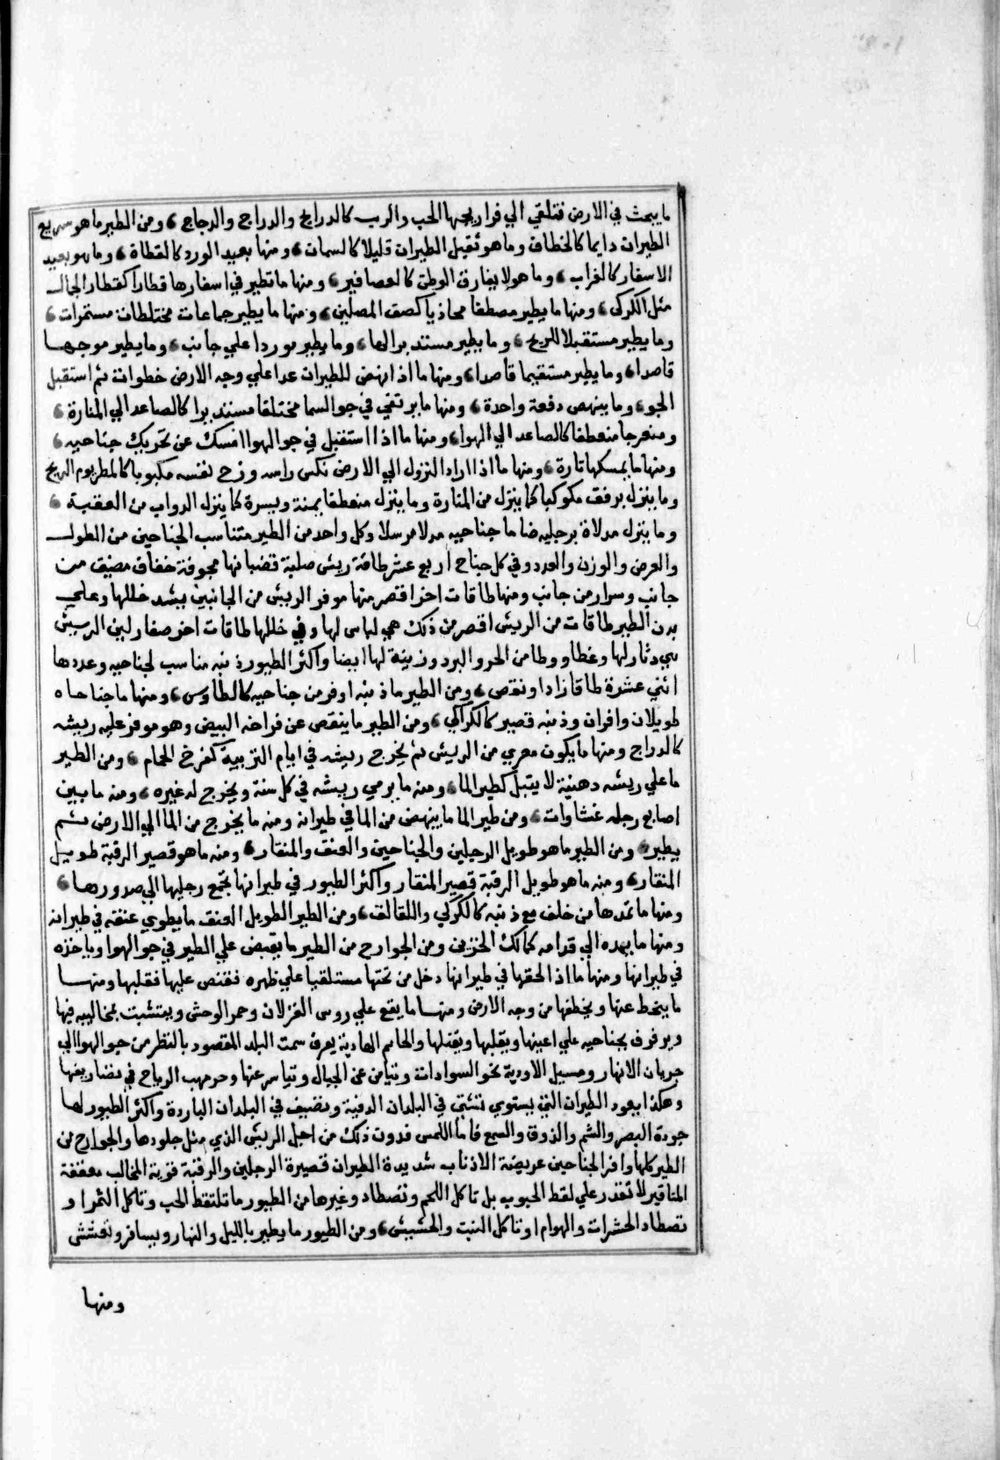 ما يبحث في الارض فتلقي الي فراريجها الحب والرب كالدرايج والدراج والدجاج ، ومن الطير ما هو سريع
الطيران دايما كالخطاف وما هو ثقيل الطيران قليلا كالسمان ، ومنها بعيد الورد كالقطاة ، وما هو بعيد
الاسفار كالغراب ، وما هو لا يفارق الوطن كالعصافير ، ومنها ما تطير في اسفارها قطارا كقطار الجمال
مثل الكركي ، ومنها ما يطير مصطفا محاذيا كصف المصلين ، ومنها ما يطير جماعات مختلطات مستمرات ،
وما يطير مستقبلا للريح ، وما يطير مستدبرا لها ، وما يطير موردا علي جانب ، وما يطير موجها
قاصدا ، وما يطير مستقيما قاصدا ، ومنها ما اذا نهض للطيران عدا علي وجه الارض خطوات ثم استقبل
الجو ، وما ينهض دفعة واحدة ، ومنها ما يرتقي في جو السما مختلفا مستديرا كالصاعد الي المنارة ،
ومنعرجا منعطفا كالصاعد الي الهوا ، ومنها ما اذا استقبل في جو الهوا امسك عن تحريك جناحيه ،
ومنها ما يمسكها تارة ، ومنها ما اذا اراد النزول الي الارض نكس راسه وزج نفسه مكبوبا كالمطر يوم الريح
وما ينزل برفق مكوكبا كما ينزل من المنارة وما ينزل منعطفا يمنة ويسرة كما ينزل الدواب من العقبة ،
وما ينزل مدلاة برجليه ضاما جناحيه مدلا مرسلا وكل واحد من الطير متناسب الجناحين من الطول
والعرض والوزن والعدد وفي كل جناح اربع عشر طاقة ريش صلبة قضبانها مجوفة خفاف مصنف من
جانب وسوار من جانب ومنها طاقات اخر اقصر منها موفر الريش من الجانبين يشد خللها وعلي
بدن الطير طاقات من الريش اقصر من ذلك هي لباس لها وفي خللها طاقات اخر صغار لين الريش
هي دثار لها وغطا ووطا من الحر والبرد وزينة لها ايضا واكثر الطيور ذنبه مناسب لجناحيه وعددها
اثني عشرة طاقا زاد او نقص ، ومن الطير ما ذنبه اوفر من جناحيه كالطاوس ، ومنها ما جناحاه
طويلان وافران وذنبه قصير كالكراكي ، ومن الطير ما ينقص عن فراخه البيض وهو موفر عليه ريشه
كالدراج ومنها ما يكون معري من الريش ثم يخرج ريشه في ايام التربية كفرخ الحمام ، ومن الطير
ما علي ريشه دهنية لا يبتل كطير الما ، ومنه ما يرمي ريشه في كل سنة ويخرج له غيره ، ومنه ما بين
اصابع رجله غشاوات ، ومن طير الما ما ينهض من الما في طيرانه ومنه ما يخرج من الما الي الارض ثم
يطير ، ومن الطير ما هو طويل الرجلين والجناحين والعنق والمنقار ، ومنه ما هو قصير الرقبة طويل
المنقار ، ومنه ما هو طويل الرقبة قصير المنقار واكثر الطيور في طيرانها يجمع رجليها الي صدورها ،
ومنها ما تمدها من خلف مع ذنبه كالكركي واللقالق ، ومن الطير الطويل العنق ما يطوي عنقه في طيرانه
ومنها ما يمده الي قدامه كمالك الحزين ومن الجوارح من الطير ما يقبض علي الطير في جو الهوا وياخذه
في طيرانها ومنها ما اذا لحقها في طيرانها دخل من تحتها مستلقيا علي ظهره فقنص عليها فقلبها ومنها
ما ينحط عنها ويخطفها من وجه الارض ومنها ما يقع علي روس الغزلان وحمر الوحش ويتشبث بمخاليبه فيها
ويرفرف بجناحيه علي اعينها ويقلبها ويقتلها والحمام الهادية يعرف سمت البلد المقصود بالنظر من جو الهوا الي
جريان الانهار ومسيل الاودية نحو السوادات ويتيامن عن الجبال وتياسر عنها وحر مهب الرياح في تصاريفها
وهكذا يعود الطيران التي يستوي تشتي في البلدان الدفية وتصيف في البلدان الباردة واكثر الطيور لها
جودة البصر والشم والذوق والسمع فاما اللمس فدون ذلك من اجل الريش الذي مثل جلودها والجوارح من
الطير كلها وافر الجناحين عريضة الاذناب شديدة الطيران قصيرة الرجلين والرقبة قوية المخالب معقفة
المناقير لا تقدر علي لقط الحبوب بل تاكل اللحم وتصطاد وغيرها من الطيور ما تلتقط الحب وتاكل الثمرا و
تصطاد الحشرات والهوام او تاكل النبت والحشيش ، ومن الطيور ما يطير بالليل والنهار ويسافر وتعشش
ومنها